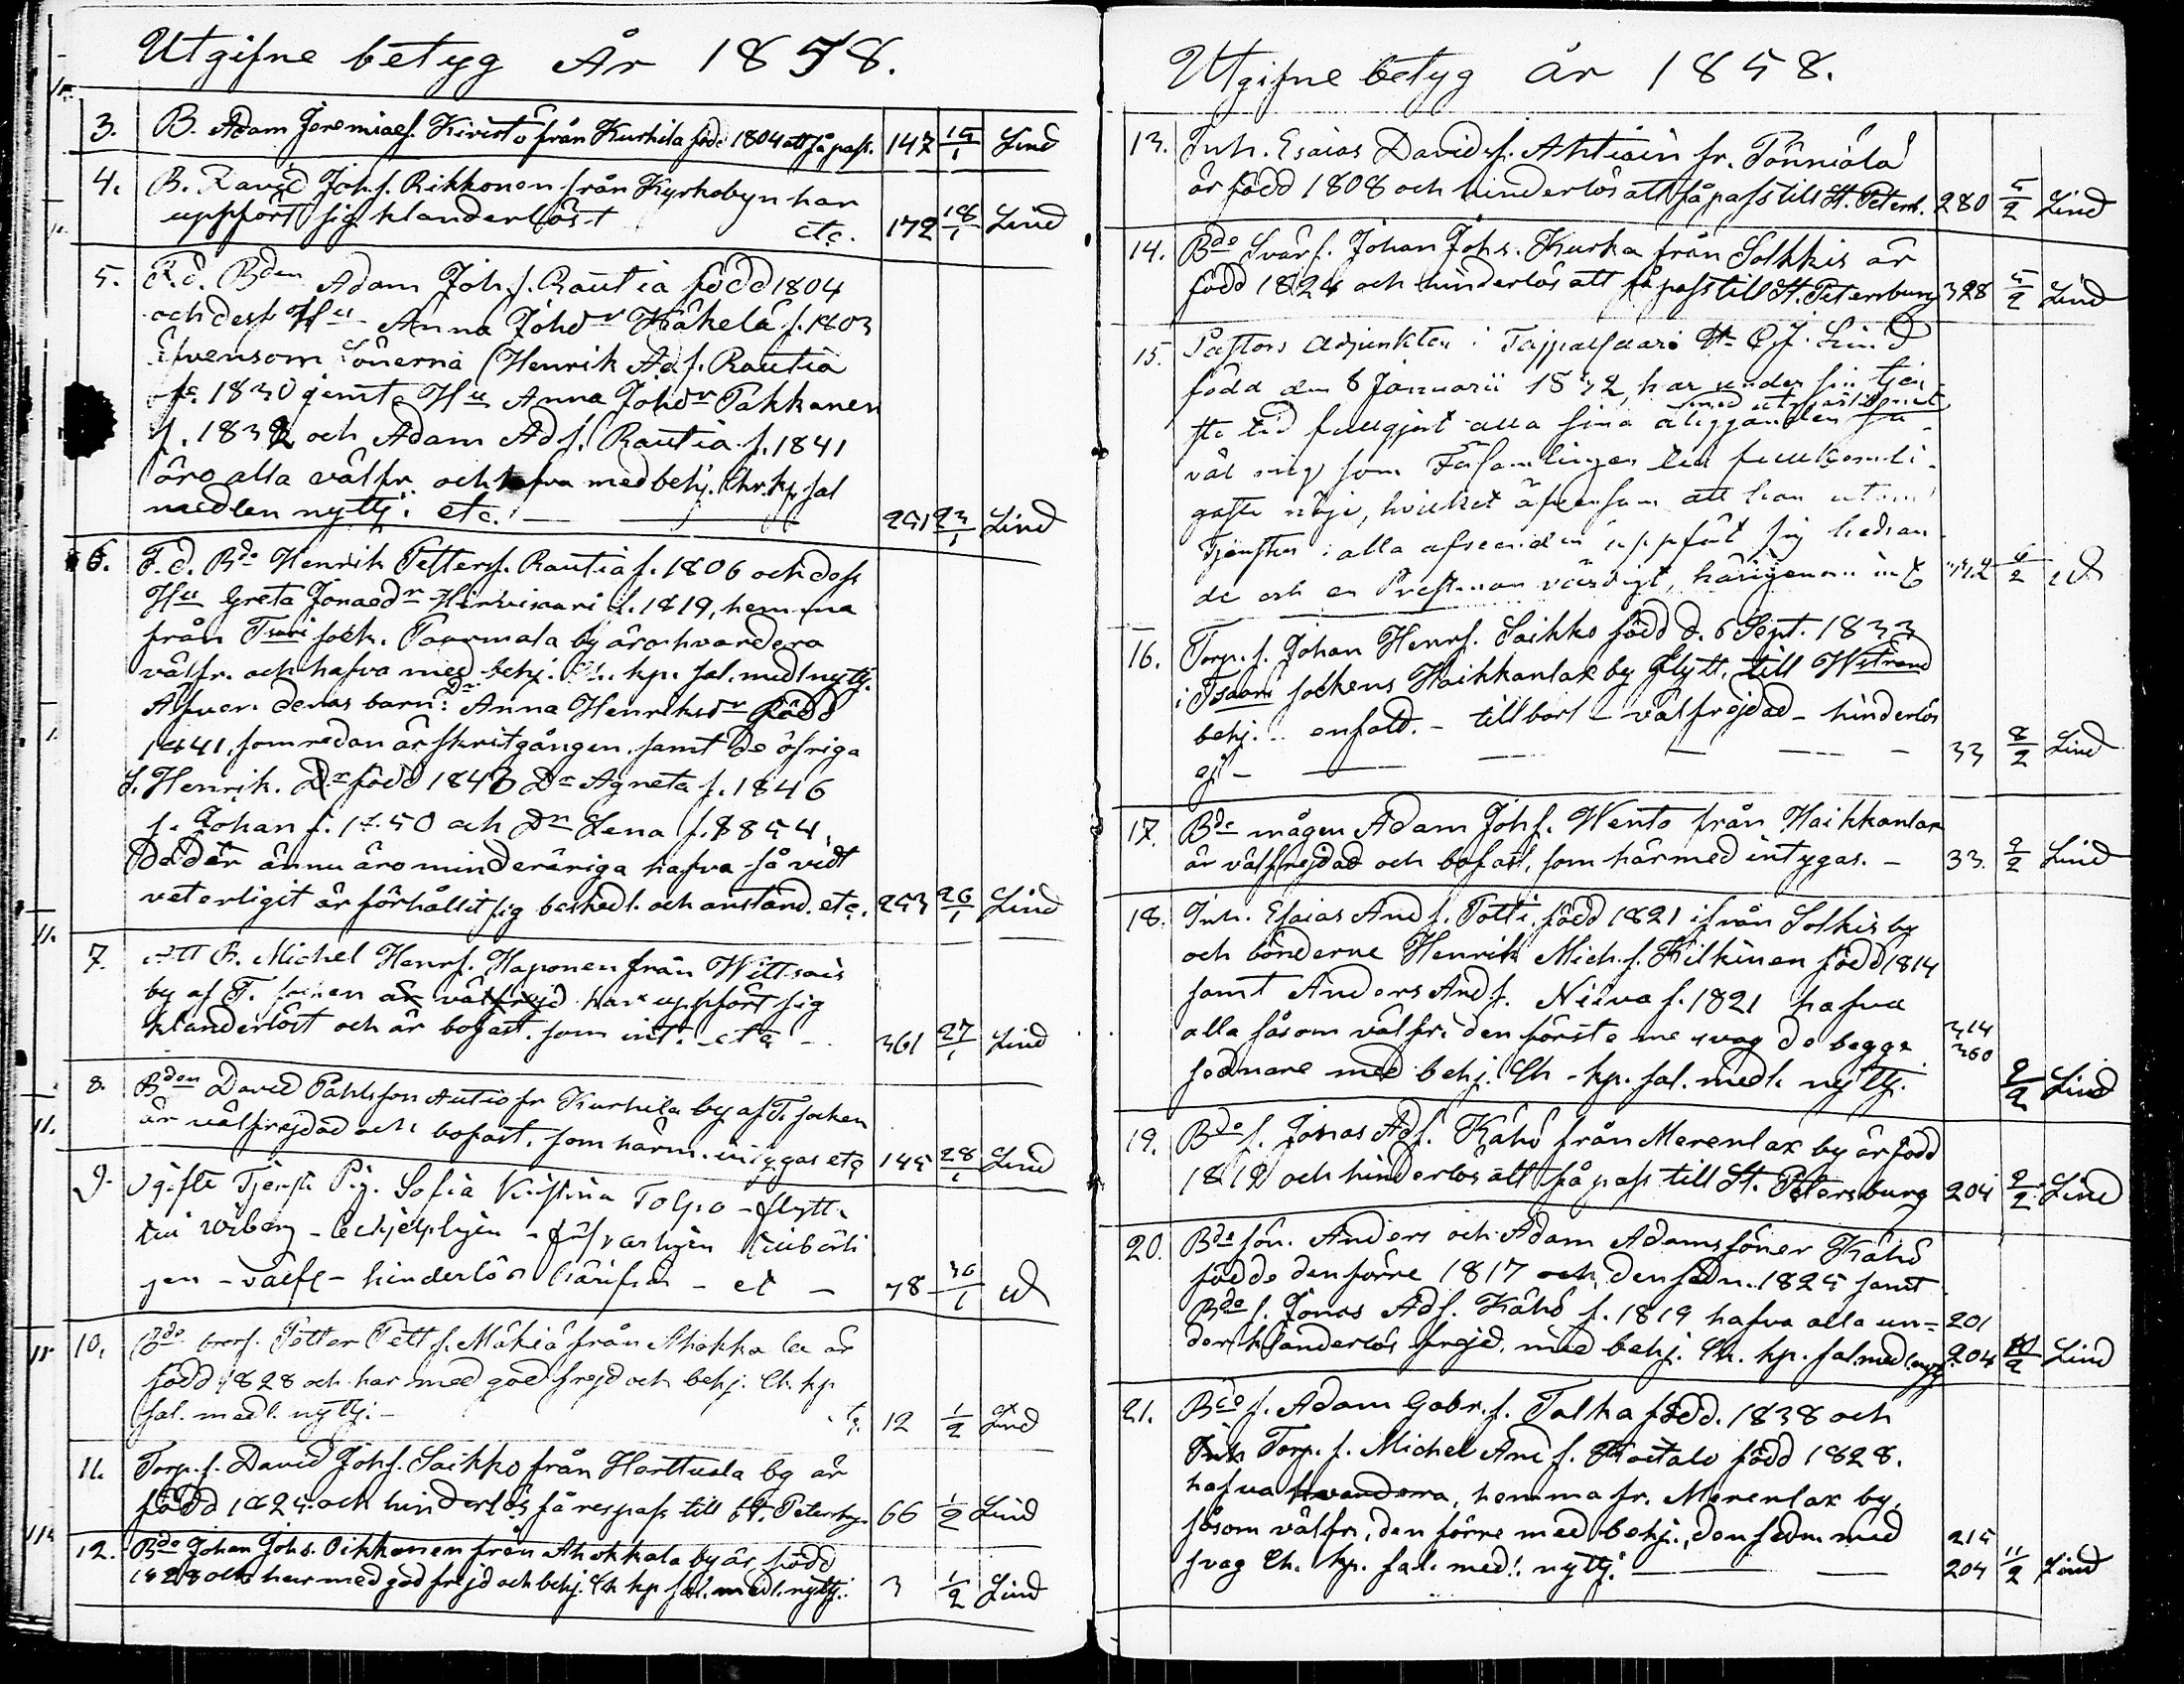 Utgifne betyg År 1858.
3. B. Adam Jeremiaes. Kivistö från Kurkila född 1804 att få pass. 147 15/1 Lind
4. B. David Johs. Rikkonen från Kyrkobyn har
uppfört sig klanderlöst etc. 172 18/1 Lind
5. F.d. Bden Adam Joh.s. Rautia född 1804
och dess Hu Anna Johdr Käkelä f. 1803
äfvensom Sönerna (Henrik Ad.s. Rautia
f. 1830 jemte Hu Anna Johdr Pakkanen
f. 1832 och Adam Ads. Rautia f. 1841
äro alla välfr. och hafva med behj. Chr. kp. sal
medlen nyttj. etc. 251 23/1 Lind
6. F.d. Bde Henrik Petterss. Rautia f. 1806 och dess
Hu Greta Jonaedr Hirvisaari f. 1819, hemma
från socken. Paarmala by äro hvardera
välfr. och hafva med behj. Ch. kp. sal. medl nyttj.
Äfven deras barn: Dr Anna Henriksdr född
1841, som redan är skriftgången, samt de öfriga
S. Henrik. född 1843 Dr Agneta f. 1846
s. Johan f. 1850 och Dr Lena f. 1854,
de där ännu äro minderåriga hafva så vidt
veterligit är förhållit sig beskedl. och anständ. etc. 253 26/1 Lind
7. Att B. Michel Henrs. Haponen från Wittsais
by af T. socken är välfrejd har uppfört sig
klanderlöst och är bofast, som int. etc - 361 27/1 Lind
8. Bden David Påhlsson Autio fr Kurkila by af T. socken
är välfrejdad och bofast, som härm. intygas etc 145 28/1 Lind
9. Ogifte Tjenste Pig. Sofia Kristina Tolpo - flytt.
till Wiborg - behjelpligen - försvarligen tillbörli
gen - välfr - hinderlös härifrån - et - 78 30/1 Lind
10. Bde brors. Petter Pett.s. Mäkiä från Ahokkala är
född 1828 och har med god frejd och behj. Ch. kp
sal. medl. nyttj. - 12 1/2 Lind
11. Torp. s. David Johs. Saikko från Harttusla by är
född 1825 och hinderlös få respass till St. Petersbg. 66 1/2 Lind
12. Bde Johan Johs. Oikkonen från Ahokkala by är född
1828 och har med god frejd och behj. Ch kp sal. medl. nyttj. 3 1/2 Lind
Utgifne betyg år 1858.
13. Inh. Esaias Davids. Ahtiain fr. Pönniälä
är född 1808 och hinderlös att få pass till St. Petersb. 280 5/2 Lind
14. Bde Svärs. Johan Johs. Kurka från Solkkis är
född 1824 och hinderlös att få pass till St. Petersburg 328 5/2 Lind
15. Pastors Adjunkten i Taipalsaari Hr Lind
född den 8 Januarii 1832, har under sin tjen
ste tid fullgjort alla sina åligganden
väl mig som Församlingen till fullkomli
gaste nöje, hvilket äfvensom att han utom
Tjensten i alla afseenden uppfört sig hedran
de och en Prestman värdigt, härigenom int 6/2
16. Torp. s. Johan Henrs. Saikko född d. 6 Sept. 1833
i Tsaari sockens Haikkanlax by flytt. till Witrand
behj. - enfald. - tillborl - välfrejdad - hinderlös
gi - 33 8/2 Lind
17. Bde mågen Adam Johs. Wento från Haikkanlax
är välfrejdad och bofast, som härmed intygas. - 33. 9/2 Lind
18. Inh. Esaias Ands. Potti född 1821 ifrån Solkis by
och bönderne Henrik Mich.s. Kilkinen född 1814
samt Anders Ands. Niiva f. 1821 hafva
alla såsom välfr. den förste me svag de begge 314 360
sednare med behj. Ch - kp. sal. medl. nyttj. 9/2 Lind
19. Bde s. Jonas Ads. Kähö från Merenlax by är född
1819 och hinderlös att få pass till St. Petersburg 204 9/2 Lind
20. Bde sön. Anders och Adam Adamssöner Kähö
födde den förre 1817 och den sedn. 1825 samt
Bde s. Jonas Ads. Kähö f. 1819 hafva alla un= 201
der klanderlös frejd, med behj. Ch. kp. sal. medl nyttj. 204 10/2 Lind
21. Bde s. Adam Gabr. s. Talka född. 1838 och
Inh Torp. s. Michel And s. Koitalo född 1828.
hafva hvardera, hemma fr. Merenlax by,
såsom välfr., den förre med behj., den sedn. med 215
svag Ch. kp. sal. medl. nyttj. 204 11/2 Lind